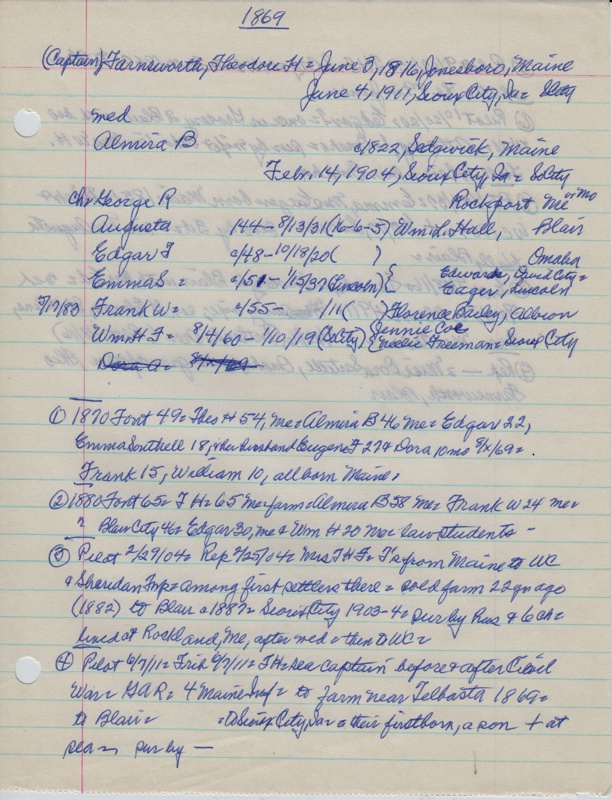 1869
(Captain) Farnsworth, Theodore H = June 3, 1816, Jonesboro, Maine
June 4, 1911, Sioux City, Ia =
med
Almira B c/1822, Sedgwick, Maine
Febr. 14, 1904, Sioux City, Ia = SoCity
Ch = George R Rockport Me or Mo
Augusta 144 - 8/13/31 (16-6-5) Wm. L. Hall, Blair
Edgar T c/48 - 10/18/20 ( ) Omaha
Emma S = c/51 - 1/15/37 (Lincoln) { Edwards, David City =
Eager, Lincoln
5/17/80 Frank W = c/55 - /11 ( ) Florence Bailey, Albion
Wm H F = 8/4/60 - 1/10/19 (SoCity) { Jennie Coe
Freeman = Sioux City
Dora A =
① 1870 Font 49 = Theo H 54, me = Almira B 46 Me = Edgar 22,
Emma Southell 18, + her husband Eugene F 27 + Dora 10 mo 8/x/69 =
Frank 15, William 10, all born Maine.
② 1880 Font 65 = T H = 65 Me = farm = Almira B 58 Me = Frank W 24 me =
? Blair City 46 = Edgar 30, me + Wm H 20 Me = law students -
③ Pilot 2/29/04 = Rep 2/25/04 = Mrs T H F = T's from Maine to WC
+ Sheridan Twp = among first settlers there = sold farm 22 yr ago
(1882) to Blair = 1887 = Sioux City 1903-4 = sur by hus + 6 ch =
lived at Rockland, Me, after med = then to WC =
④ Pilot 6/7/11 = Trib 6/7/11 = T H = sea captain before + after Civil
War = GAR = 4 Maine Inf = to farm near Telbasta 1869 =
to Blair = = to Sioux City, Ia = their firstborn, a son + at
sea = sur by -